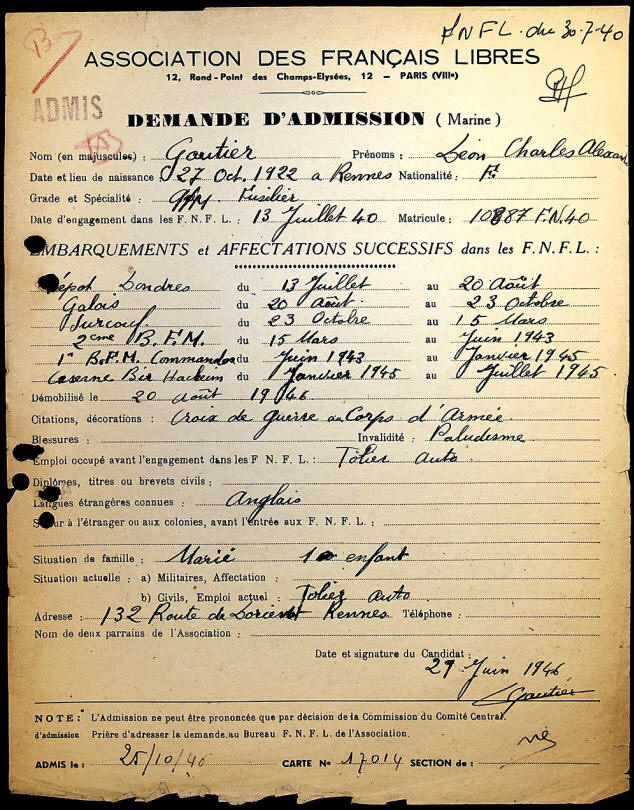 FNFL. du 30-7-40
Bon
ASSOCIATION DES FRANÇAIS LIBRES
12, Rond-Point des Champs-Elysées, 12 — PARIS (VIIIe)
ADMIS
DEMANDE D'ADMISSION (Marine)
Nom (en majuscules) : Gautier Prénoms : Léon Charles Alexan
Date et lieu de naissance : 27 Oct. 1922 a Rennes Nationalité : F.
Grade et Spécialité : Fusilier
Date d'engagement dans les F. N. F. L. : 13 Juillet 40 Matricule : 10887 F.N.40
EMBARQUEMENTS et AFFECTATIONS SUCCESSIFS dans les F. N. F. L. :
Dépot Londres du 13 Juillet au 20 Août
Galois du 20 Août au 23 Octobre
Surcouf du 23 Octobre au 15 Mars
2eme B.F.M. du 15 Mars au Juin 1943
1er B.F.M. Commandos du Juin 1943 au Janvier 1945
Caserne Bir Hacheim du 1 Janvier 1945 au Juillet 1945
Démobilisé le 20 août 1946
Citations, décorations : Croix de Guerre au Corps d'Armée.
Blessures : Invalidité : Paludesme
Emploi occupé avant l'engagement dans les F. N. F. L. : Tolier Auto
Diplômes, titres ou brevets civils :
Langues étrangères connues : Anglais
Séjour à l'étranger ou aux colonies, avant l'entrée aux F. N. F. L. :
Situation de famille : Marié 1 enfant
Situation actuelle : a) Militaires, Affectation :
b) Civils, Emploi actuel : Tolier auto
Adresse : 132 Route de Lorient Rennes Téléphone :
Nom de deux parrains de l'Association :
Date et signature du Candidat :
29 Juin 1946
LGautier
NOTE : L'Admission ne peut être prononcée que par décision de la Commission du Comité Central.
d'admission Prière d'adresser la demande au Bureau F. N. F. L. de l'Association.
ADMIS le : 25/10/46 CARTE No 17014 SECTION de :